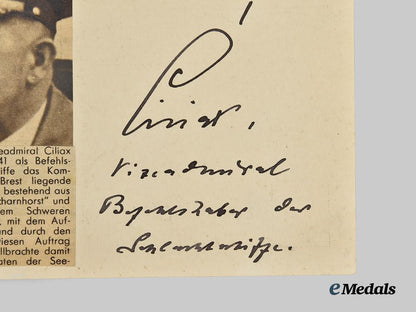 eadmiral Ciliax
41 als Befehls-
iffe das Kom-
Brest liegende
bestehend aus
charnhorst" und
em Schweren
, mit dem Auf-
and durch den
iesen Auftrag
llbrachte damit
aten der See-
Ciliax,
Vizeadmiral
Befehlshaber der
Schlachtschiffe.
eMedals